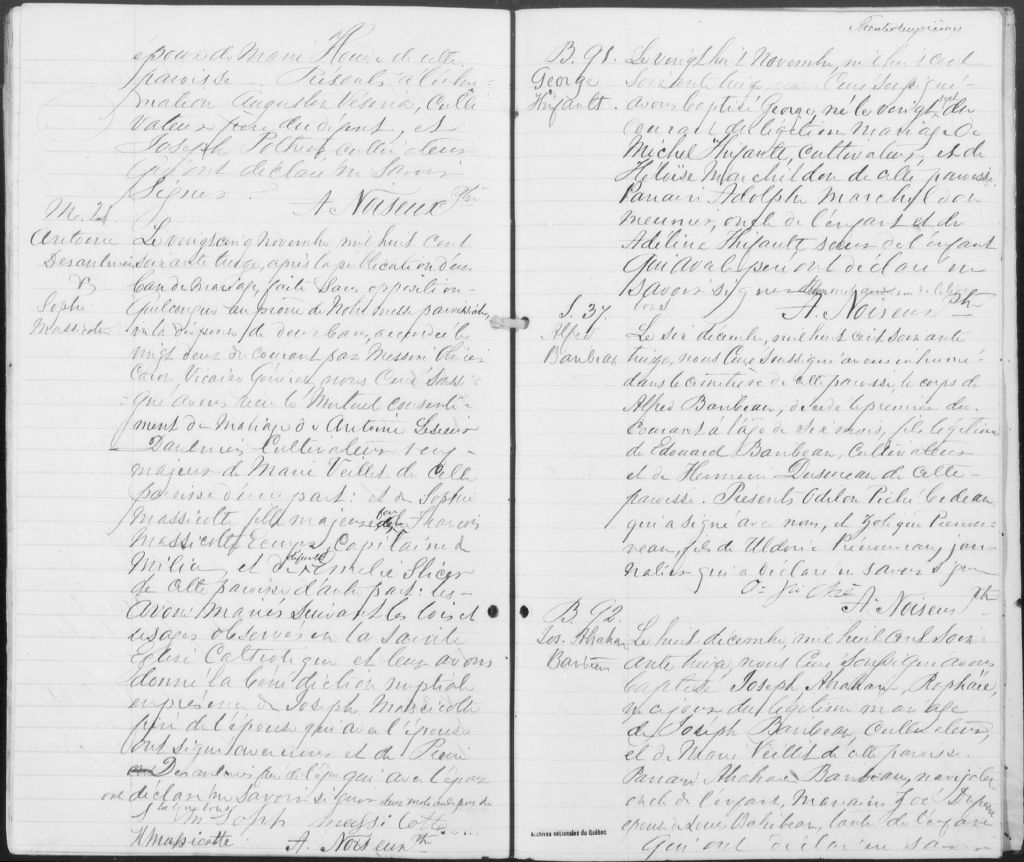 épouse de Marie Houde de cette
paroisse. Présents à l'inhu-
mation Augustin Vésina, culti-
vateur père du départ, et
Joseph Pothier cultivateur
qui ont déclaré ne savoir
signer.
A. Noiseux Ptre
M. 21.
Antoine
Desaulniers
&
Sophie
Massicotte
Le vingt cinq Novembre mil huit cent
soixante treize, après la publication d'un
ban de mariage faite sans opposition
quelconque au prône de Notre messe paroissiale,
vu la dispense de deux bans, accordée le
vingt deux du courant par Messire Olivier
Caron, Vicaire Général, nous Curé soussi-
gné avons reçu le mutuel consente-
ment de Mariage de Antoine Lesieur
Desaulniers Cultivateur
majeur de Marie Vallet de cette
paroisse d'une part: et de Sophie
Massicotte fille majeure de François
Massicotte Ecuyer, Capitaine de
Milice, et de défunte Emelie Slicer
de cette paroisse d'autre part: les
avons mariés suivant les lois et
usages observés en la Sainte
Eglise Catholique et leur avons
donné la bénédiction nuptiale
en présence de Joseph Massicotte
père de l'épouse qui avec l'épouse
ont signé avec nous et de Pierre
Desaulniers père de l'époux qui avec l'époux
ont déclaré ne savoir signer
M. Soph Massicotte
Massicotte
A. Noiseux Ptre
B. 91.
George
Thifault.
Le vingt huit Novembre, mil huit cent
soixante treize, nous Curé soussigné
avons baptisé George, né le vingt sept du
courant du légitime Mariage de
Michel Thifault, cultivateur, et de
Héloïse Marchildon de cette paroisse.
Parrain Adolphe Marchildon
meunier, oncle de l'enfant et de
Adélina Thifault, soeur de l'enfant
qui avec le père ont déclaré ne
savoir signer
A. Noiseux Ptre
S. 37.
Alfred
Baribeau
Le six décembre, mil huit cent soixante
treize, nous Curé soussigné avons inhumé
dans le cimetière de cette paroisse, le corps de
Alfred Baribeau, décédé le premier du
Courant à l'âge de six mois, fils légitime
de Edouard Baribeau, Cultivateur
et de Hermine Dusureau de cette
paroisse. Présents Odilon Piché bedeau
qui a signé avec nous, et Zotique Perineau,
fils de Uldoric jour-
nalier qui a déclaré ne savoir signer
Od. Piché
A. Noiseux Ptre
B. 92.
Jos. Abraham
Baribeau
Le huit décembre, mil huit cent soix-
ante treize, nous Curé soussigné avons
baptisé Joseph Abraham, Raphaël,
né ce jour du légitime mariage
de Joseph Baribeau, Cultivateur,
et de Marie Veillet de cette paroisse.
Parrain Abraham Baribeau, navigateur
oncle de l'enfant, Marraine Zoé
épouse de Louis Baribeau, tante de l'enfant
qui ont déclaré ne savoir
Archives nationales du Québec